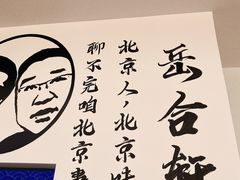 岳合轩
北京人儿北京味
聊不完咱北京事